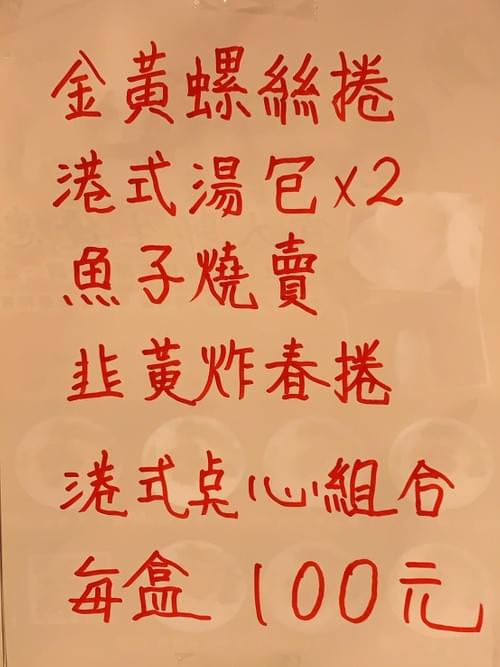 金黃螺絲捲
港式湯包x2
魚子燒賣
韭黃炸春捲
港式点心組合
每盒100元